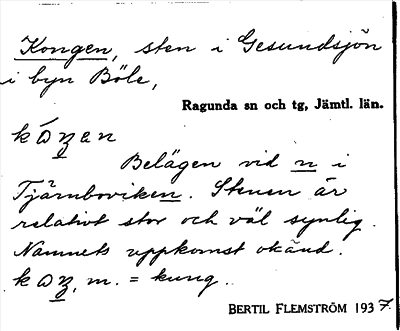 Kongen, sten i Gesundsjön
i byn Böle,
Ragunda sn och tg, Jämtl. län.
Belägen vid n i
Tjärnboviken. Stenen är
relativt stor och väl synlig.
Namnets uppkomst okänd.
m. = kung.
BERTIL FLEMSTRÖM 1937.